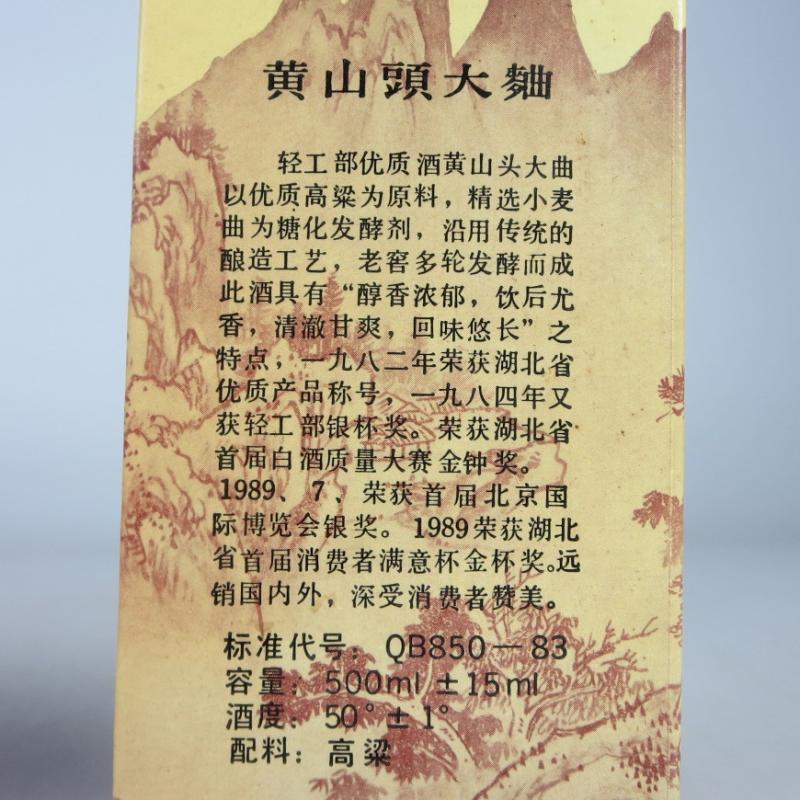 黄山頭大麯
轻工部优质酒黄山头大曲
以优质高粱为原料，精选小麦
曲为糖化发酵剂，沿用传统的
酿造工艺，老窖多轮发酵而成
此酒具有“醇香浓郁，饮后尤
香，清澈甘爽，回味悠长”之
特点，一九八二年荣获湖北省
优质产品称号，一九八四年又
获轻工部银杯奖。荣获湖北省
首届白酒质量大赛金钟奖。
1989、7、荣获首届北京国
际博览会银奖。1989荣获湖北
省首届消费者满意杯金杯奖。远
销国内外，深受消费者赞美。
标准代号：QB850—83
容量：500ml±15ml
酒度：50°±1°
配料：高粱